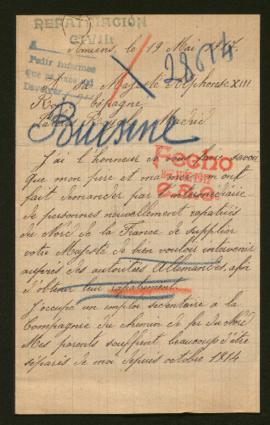 REPATRIACION
CIVIL
Amiens, le 19 Mai 1917.
A
Pedir informes
que se haga
Devolver
28614
Sa Majesté Alphonse XIII
Roi d'Espagne,
Palais Madrid
Buisine
J'ai l'honneur de faire savoir
Fecho
que mon père et ma mère m'ont
fait demander par l'intermédiaire
de personnes nouvellement rapatriés
du Nord de la France de supplier
votre Majesté de bien vouloir intervenir
auprès des autorités Allemandes, afin
d'obtenir leur rapatriement.
J'occupe un emploi secrétaire a la
Compagnie du chemin de fer du Nord
Mes parents souffrent beaucoup d'être
séparés de moi depuis octobre 1914